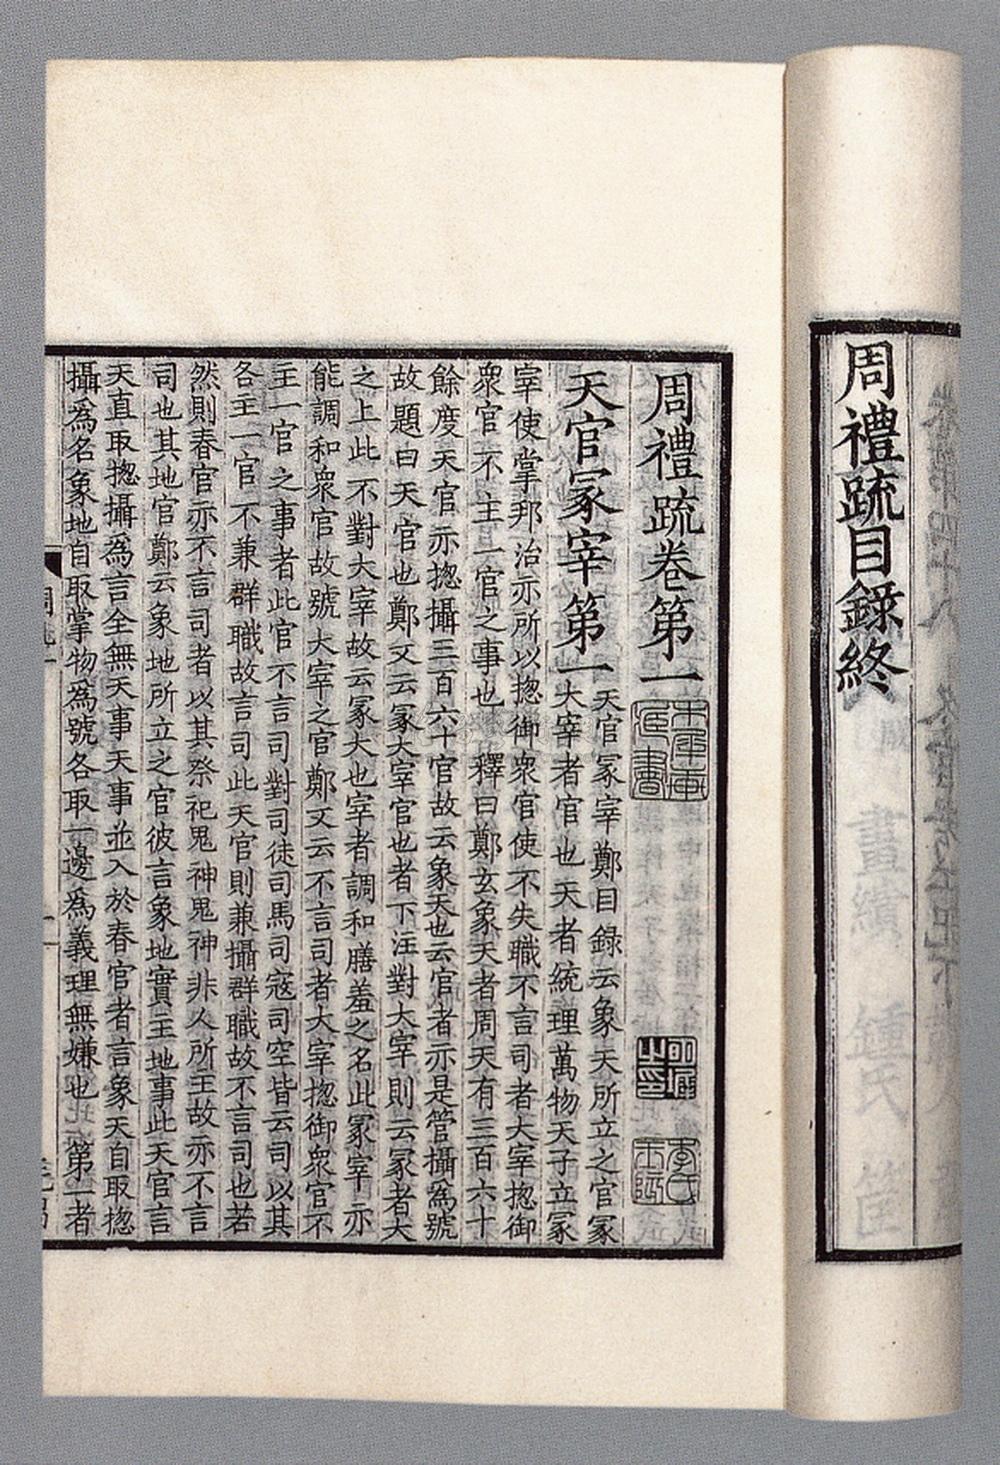 周禮䟽目錄終
周禮䟽卷第一
天官冢宰第一
天官冢宰鄭目錄云象天所立之官冢
大宰者官也天者統理萬物天子立冢
宰使掌邦治亦所以揔御衆官使不失職不言司者大宰揔御
衆官不主一官之事也 釋曰鄭玄象天者周天有三百六十
餘度天官亦揔攝三百六十官故云象天也云官者亦是管攝為號
故題曰天官也鄭又云冢大宰官也者下注對大宰則云冢者大
之上此不對大宰故云冢大也宰者調和膳羞之名此冢宰亦
能調和衆官故號大宰之官鄭又云不言司者大宰揔御衆官不
主一官之事者此官不言司對司徒司馬司寇司空皆云司以其
各主一官不兼群職故言司此天官則兼攝群職故不言司也若
然則春官亦不言司者以其祭祀鬼神鬼神非人所主故亦不言
司也其地官鄭云象地所立之官彼言象地實主地事此天官言
天直取揔攝為言全無天事天事並入於春官者言象天自取揔
攝為名象地自取掌物為號各取一邊為義理無嫌也 第一者